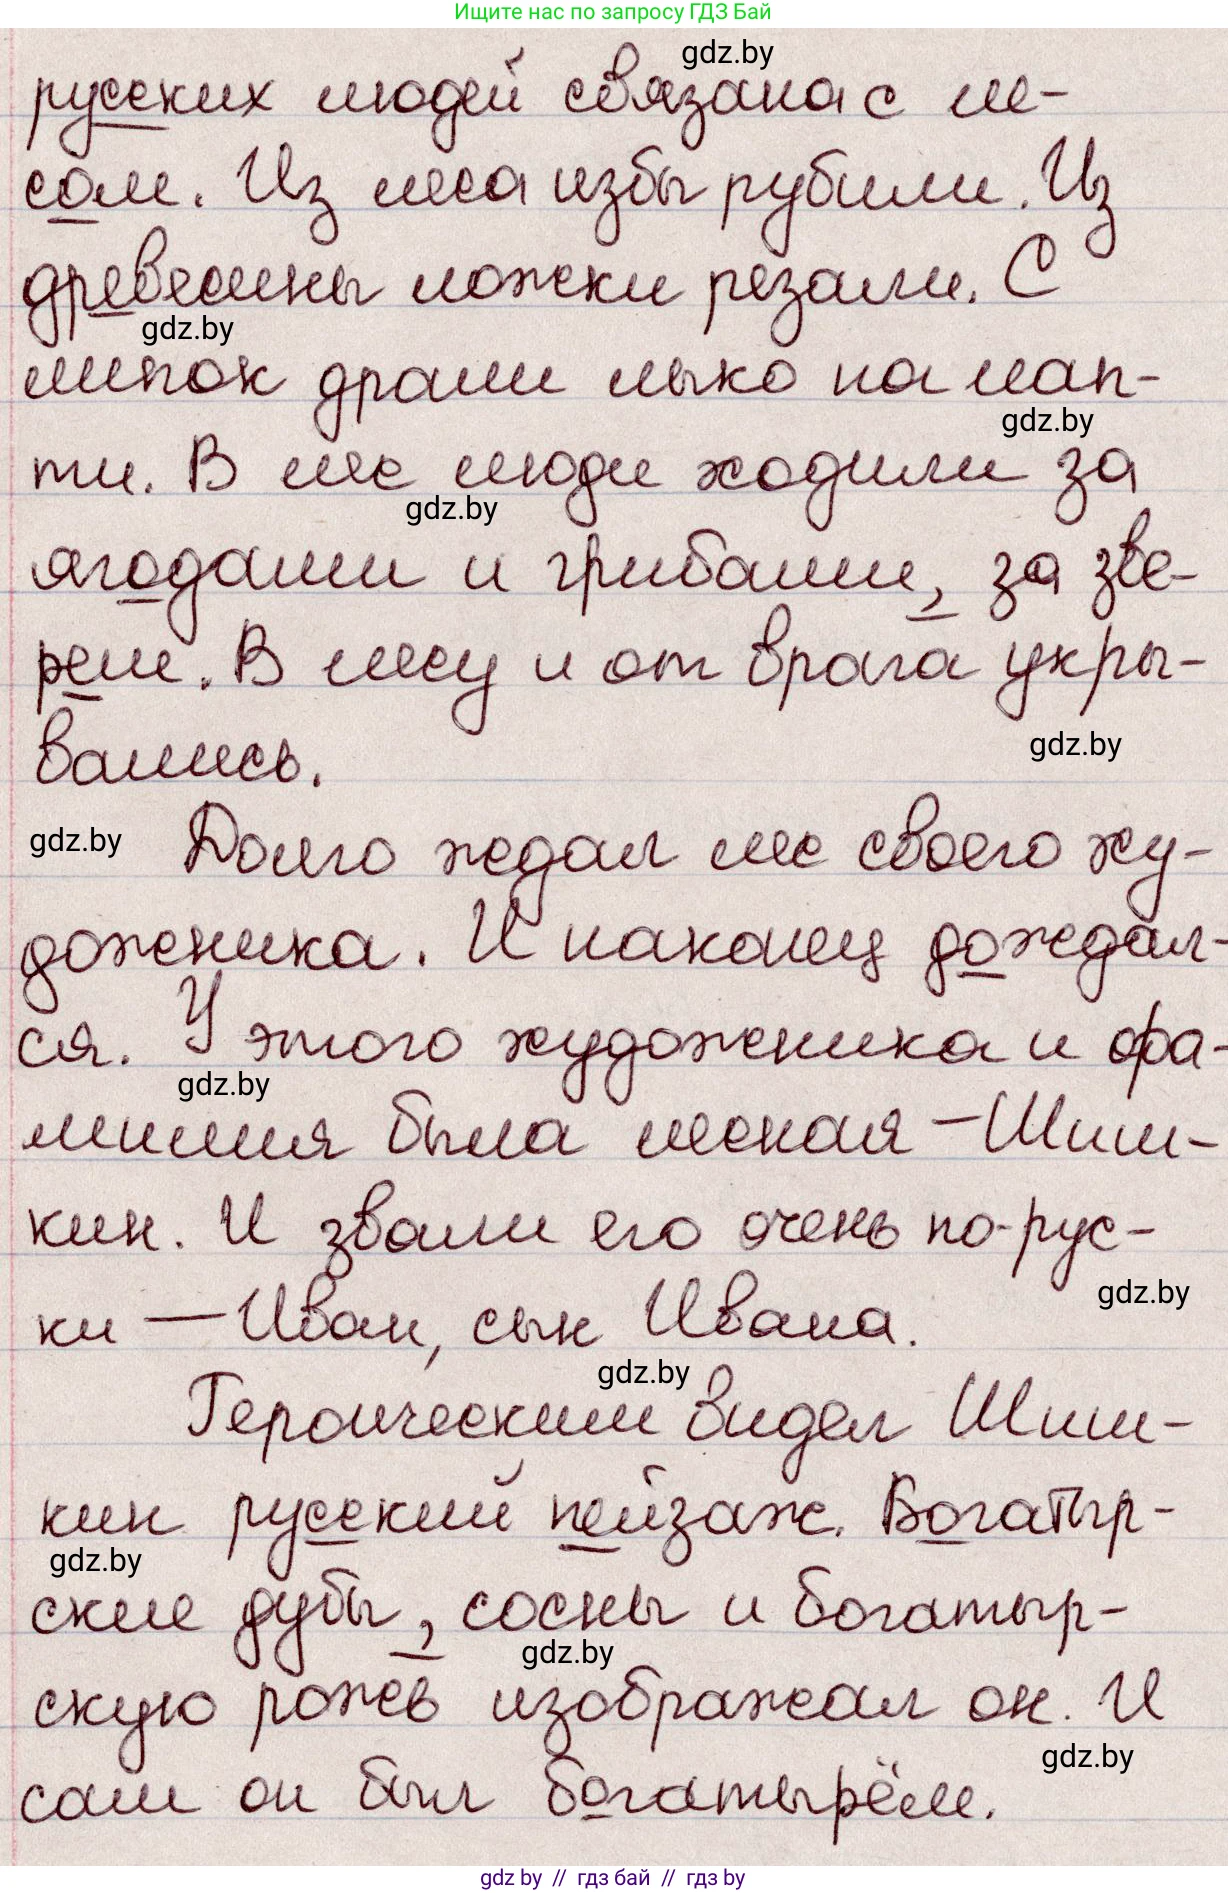 Ищите нас по запросу ГДЗ Бай
gdz.by
русских людей связана с ле-
сом. Из леса избы рубили. Из
древесины ложки резали. С
gdz.by
липок драли лыко на лап-
gdz.by
ти. В лес люди ходили за
gdz.by
ягодами и грибами, за зве-
рем. В лесу и от врага укры-
gdz.by
вались.
gdz.by
Долго ждал лес своего ху-
дожника. И наконец дождал-
ся. У этого художника и фа-
gdz.by
милия была лесная – Шиш-
кин. И звали его очень по-рус-
gdz.by
ки — Иван, сын Ивана.
gdz.by
Героическим видел Шиш-
кин русский пейзаж. Богатыр-
gdz.by
ские дубы, сосны и богатыр-
gdz.by
скую рожь изображал он. И
gdz.by
сам он был богатырём.
gdz.by // гдз бай // gdz.by